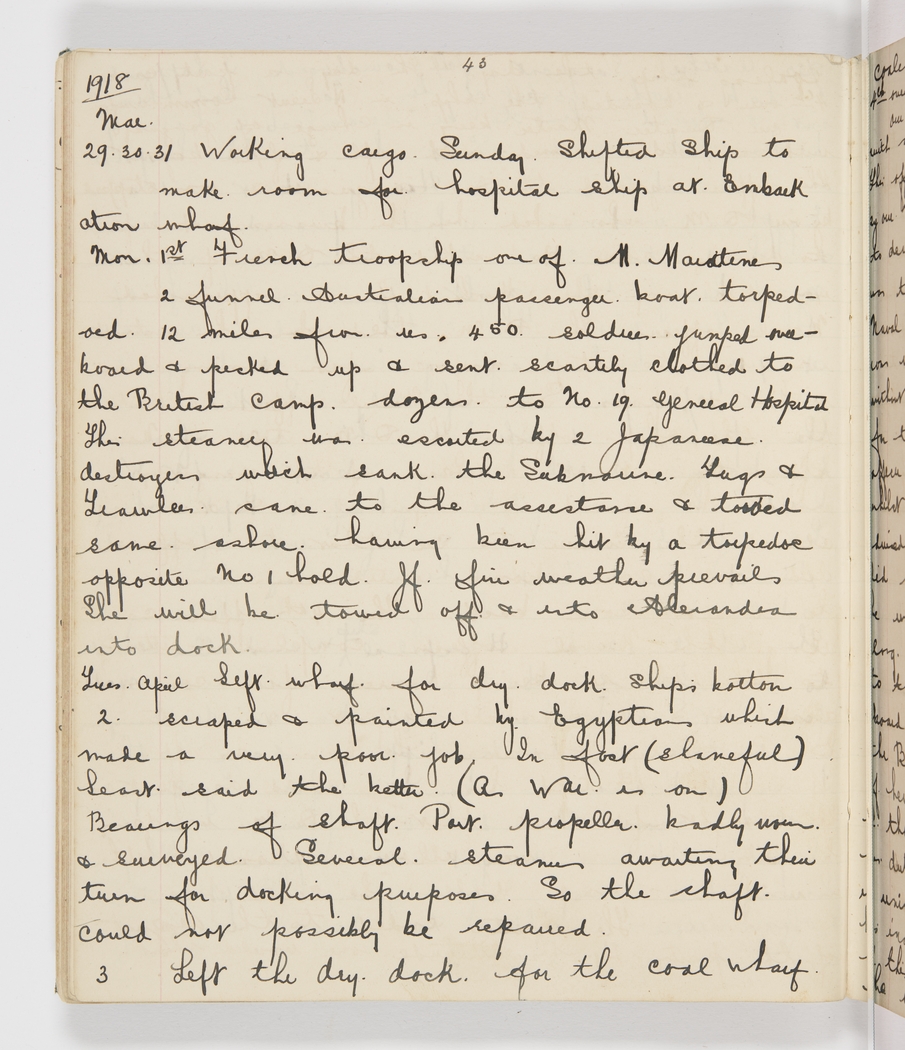 43
1918
Mar.
29.30.31 Working cargo. Sunday. Shifted Ship to
make room for hospital ship at. Embark
ation wharf.
Mon. 1st French troopship one of. M. Maratimes
2 funnel. Australian passenger. boat. torped-
oed. 12 miles from us. 450. soldiers. jumped over-
board & picked up & sent. scantily clothed to
the British Camp. dozens. to No. 19. General Hospital
This steamer was. escorted by 2 Japanese.
destroyers which sank. the Submarine. Tugs &
Trawlers. came. to the assistance & towed
same. ashore. having been hit by a torpedoe
opposite No 1 hold. If. fine weather prevails
She will be towed off. & into Alexandra
into dock.
Tues. April Left. wharf. for dry. dock. Ships botton
2. scraped & painted by. Egyptians which
made a very. poor. job, In fact (shameful)
least. said the better. (As War. is on)
Bearings of shaft. Port. propeller. badly worn.
& surveyed. Several. steamers awaiting their
turn for docking purposes. So the shaft.
could not possibly be repaired.
3 Left the dry. dock. for the coal wharf.